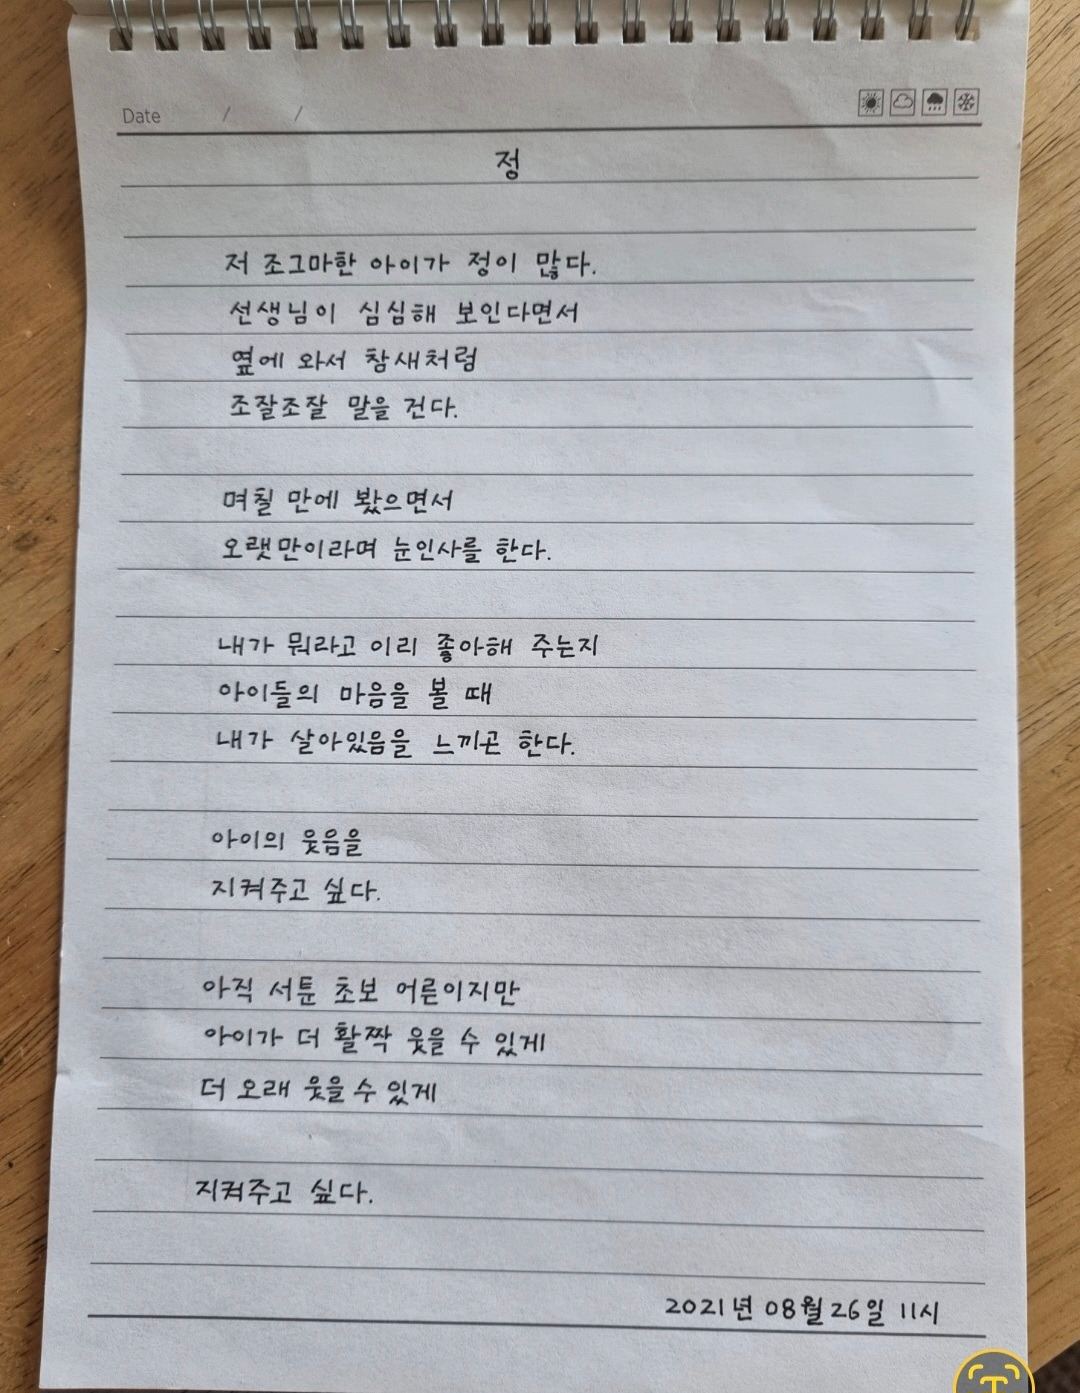 Date / /
정
저 조그마한 아이가 정이 많다.
선생님이 심심해 보인다면서
옆에 와서 참새처럼
조잘조잘 말을 건다.
며칠 만에 봤으면서
오랫만이라며 눈인사를 한다.
내가 뭐라고 이리 좋아해 주는지
아이들의 마음을 볼 때
내가 살아있음을 느끼곤 한다.
아이의 웃음을
지켜주고 싶다.
아직 서툰 초보 어른이지만
아이가 더 활짝 웃을 수 있게
더 오래 웃을 수 있게
지켜주고 싶다.
2021년 08월 26일 11시